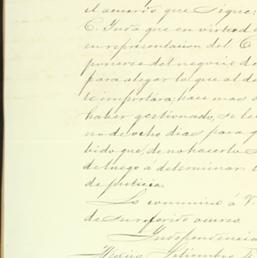 el acuerdo que sigue:
C. Justo que en virtud d
en representacion del C
ponerse del negocio d
para alegar lo que al de
te importara, hace mas d
haber gestionado, se le
no de ocho dias para q
bido que, de no hacerlo, s
de luego á determinar
de justicia.
Lo comunico á V.
de su referido ocurso
Independencia
Mexico Setiembre